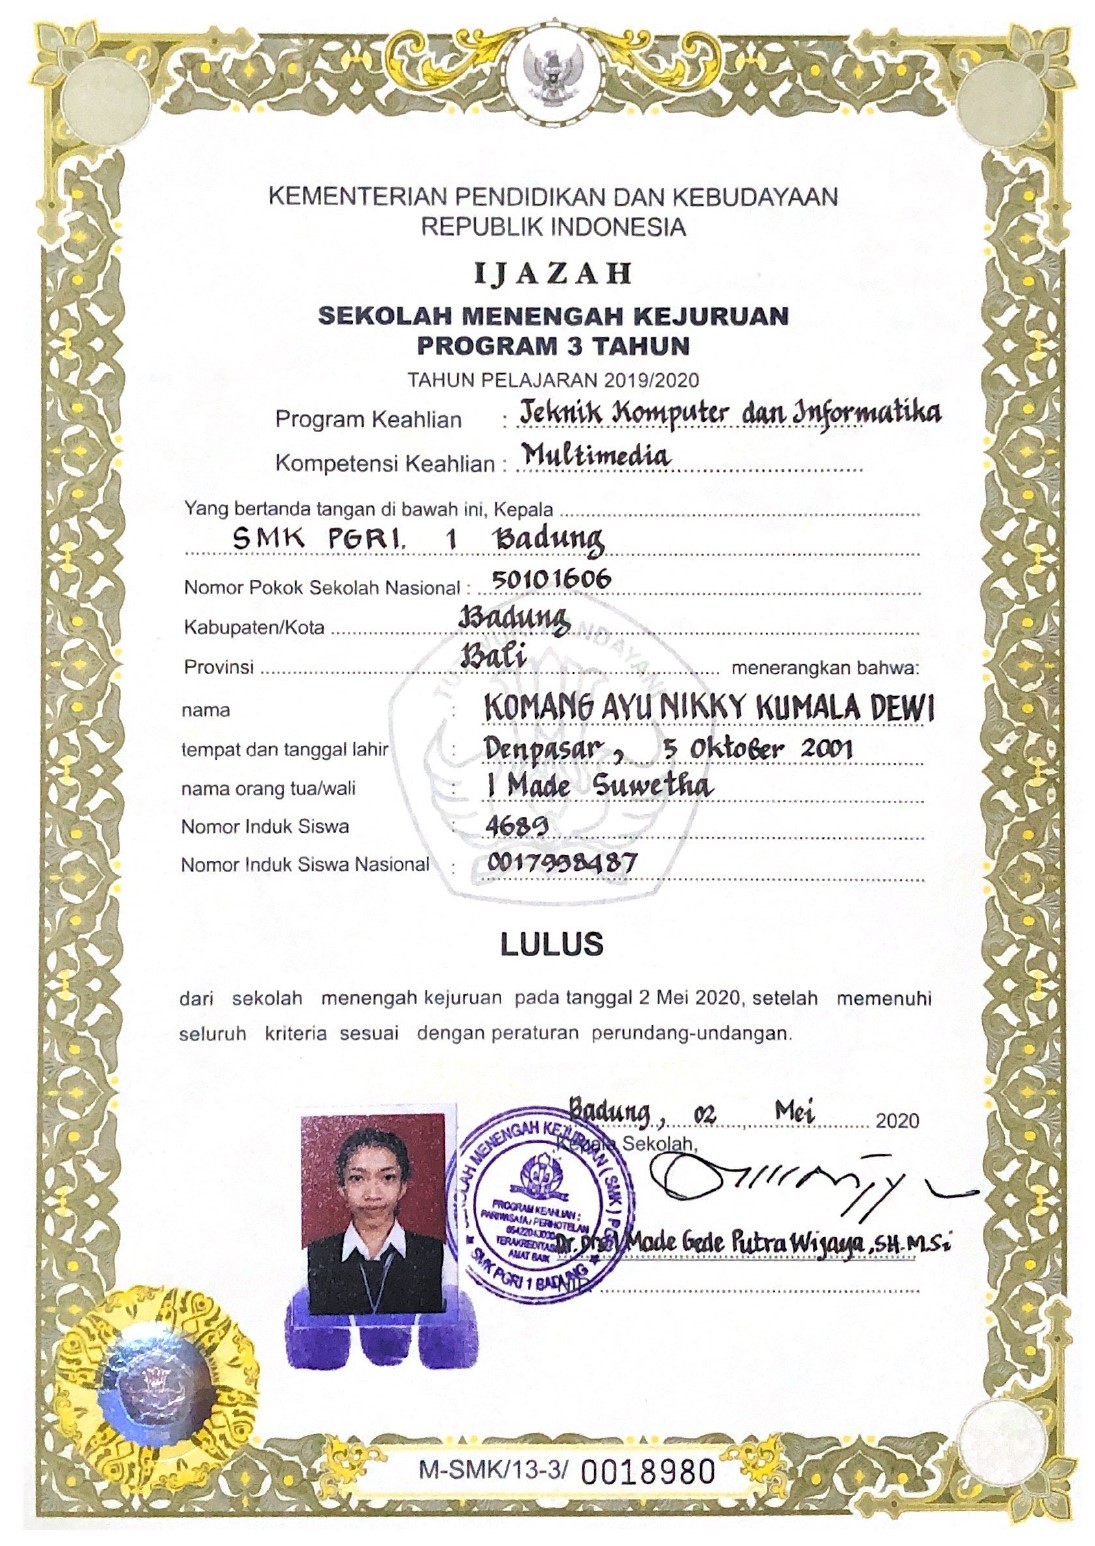 KEMENTERIAN PENDIDIKAN DAN KEBUDAYAAN
REPUBLIK INDONESIA
IJAZAH
SEKOLAH MENENGAH KEJURUAN
PROGRAM 3 TAHUN
TAHUN PELAJARAN 2019/2020
Program Keahlian : Teknik Komputer dan Informatika
Kompetensi Keahlian : Multimedia
Yang bertanda tangan di bawah ini, Kepala
SMK PGRI. 1 Badung
Nomor Pokok Sekolah Nasional : 50101606
Kabupaten/Kota Badung
Provinsi Bali menerangkan bahwa:
nama : KOMANG AYU NIKKY KUMALA DEWI
tempat dan tanggal lahir : Denpasar, 5 Oktober 2001
nama orang tua/wali : I Made Suwetha
Nomor Induk Siswa : 4689
Nomor Induk Siswa Nasional : 0017998487
LULUS
dari sekolah menengah kejuruan pada tanggal 2 Mei 2020, setelah memenuhi
seluruh kriteria sesuai dengan peraturan perundang-undangan.
Badung, 02 Mei 2020
Kepala Sekolah,
SEKOLAH MENENGAH KEJURUAN (SMK) PGRI
PROGRAM KEAHLIAN :
PARIWISATA / PERHOTELAN
TERAKREDITASI
AMAT BAIK
SMK PGRI 1 BADUNG
Dr. Drs. I Made Gede Putra Wijaya, SH. M.Si
NIP.
M-SMK/13-3/ 0018980